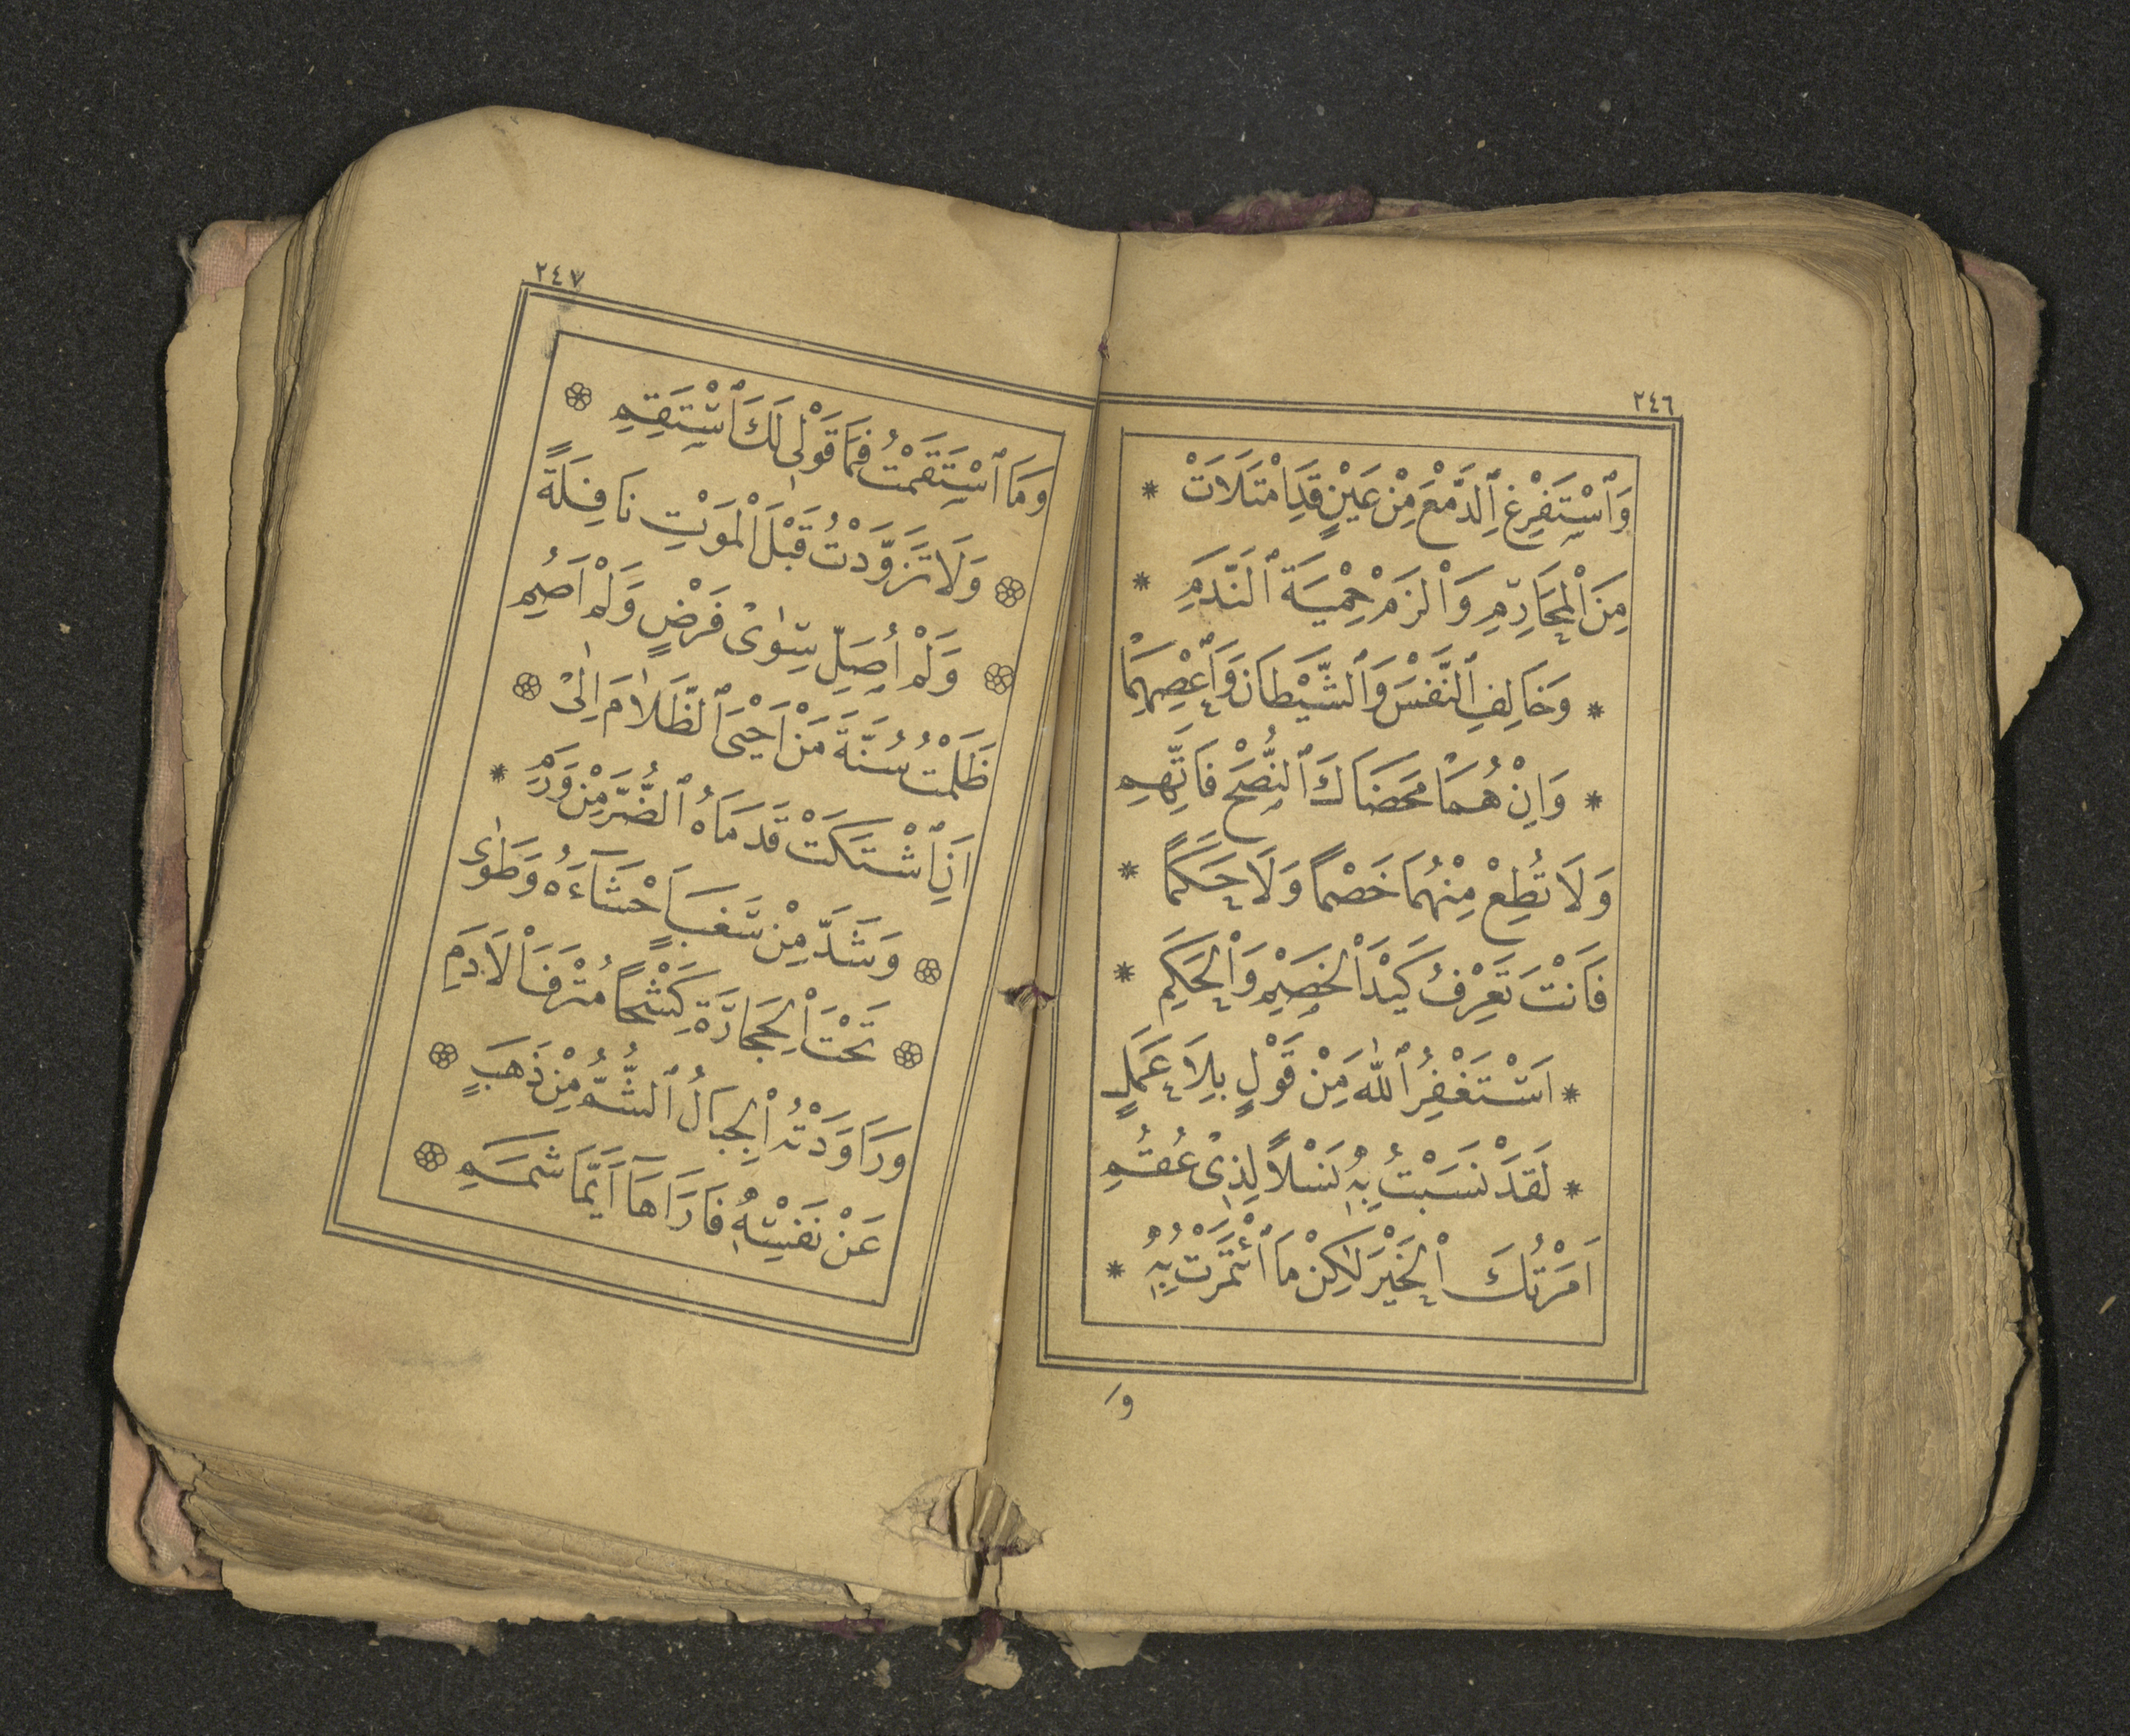 ٢٤٦
وَٱسْتَفْرِغِ ٱلدَّمْعَ مِنْ عَيْنٍ قَدِ امْتَلَاَتْ *
مِنَ الْمَحَارِمِ وَالْزَمْ حِمْيَةَ ٱلنَّدَمِ *
* وَخَالِفِ ٱلنَّفْسَ وَٱلشَّيْطَانَ وَٱعْصِهِمَا
* وَاِنْ هُمَا مَحَضَاكَ ٱلنُّصْحَ فَاتَّهِمِ
وَلَا تُطِعْ مِنْهُمَا خَصْمًا وَلَا حَكَمًا *
فَاَنْتَ تَعْرِفُ كَيْدَ الْخَصْمِ وَالْحَكَمِ *
* اَسْتَغْفِرُ ٱللّٰهَ مِنْ قَوْلٍ بِلَا عَمَلٍ
* لَقَدْ نَسَبْتُ بِهٖ نَسْلًا لِذِى عُقُمِ
اَمَرْتُكَ الْخَيْرَ لٰكِنْ مَا ٱئْتَمَرْتُ بِهٖ *
وَ
٢٤٧
وَمَا ٱسْتَقَمْتُ فَمَا قَوْلِى لَكَ ٱسْتَقِمِ
وَلَا تَزَوَّدْتُ قَبْلَ الْمَوْتِ نَافِلَةً
وَلَمْ اُصَلِّ سِوٰى فَرْضٍ وَلَمْ اَصُمِ
ظَلَمْتُ سُنَّةَ مَنْ اَحْيَى ٱلظَّلَامَ اِلٰى
اَنِ ٱشْتَكَتْ قَدَمَاهُ ٱلضُّرَّ مِنْ وَرَمِ *
وَشَدَّ مِنْ سَغَبٍ اَحْشَآءَهُ وَطَوٰى
تَحْتَ الْحِجَارَةِ كَشْحًا مُتْرَفَ الْاَدَمِ
وَرَاوَدَتْهُ الْجِبَالُ ٱلشُّمُّ مِنْ ذَهَبٍ
عَنْ نَفْسِهٖ فَاَرَاهَا اَيَّمَا شَمَمِ